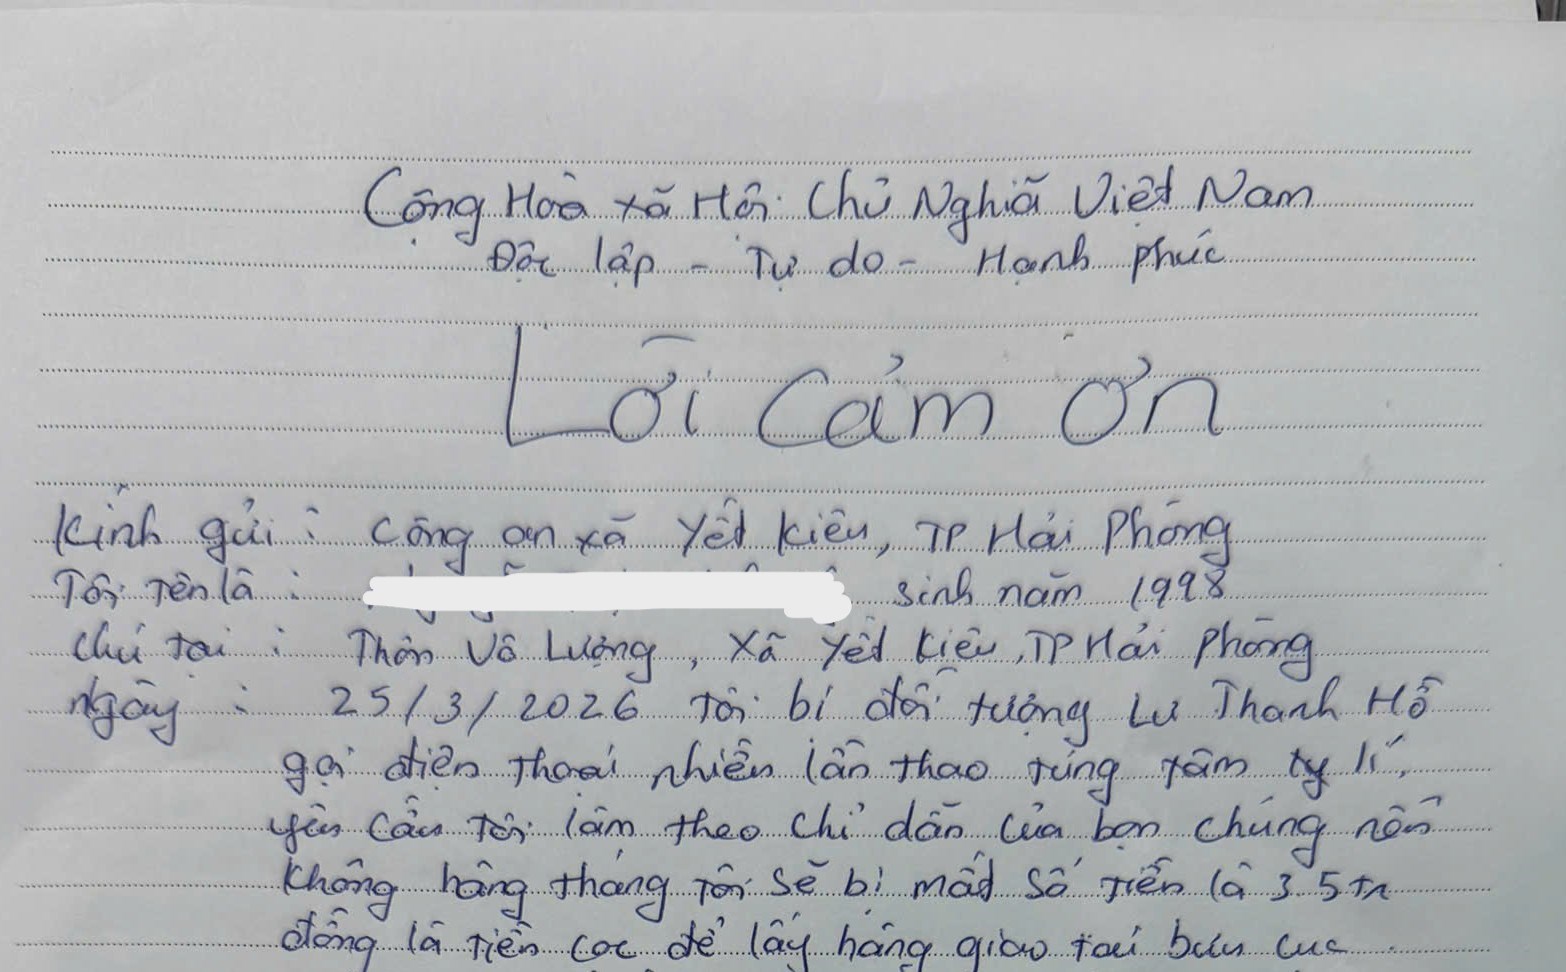 Cộng Hoà xã Hội Chủ Nghĩa Việt Nam
Độc lập - Tự do - Hạnh phúc
Lời cảm ơn
Kính gửi : Công an xã Yết Kiêu, TP Hải Phòng
Tôi tên là : sinh năm 1998
Chú tại : Thôn Vô Lượng, Xã Yết Kiêu, TP Hải Phòng
Ngày : 25/3/2026 Tôi bị đối tượng Lư Thanh Hổ
gọi điện thoại nhiều lần thao túng tâm tý lí,
yêu cầu tôi làm theo chỉ dẫn của bọn chúng nếu
không hàng tháng tôi sẽ bị mất số tiền là 3.5 tr
đồng là tiền cọc để lấy hàng giao tại bưu cục